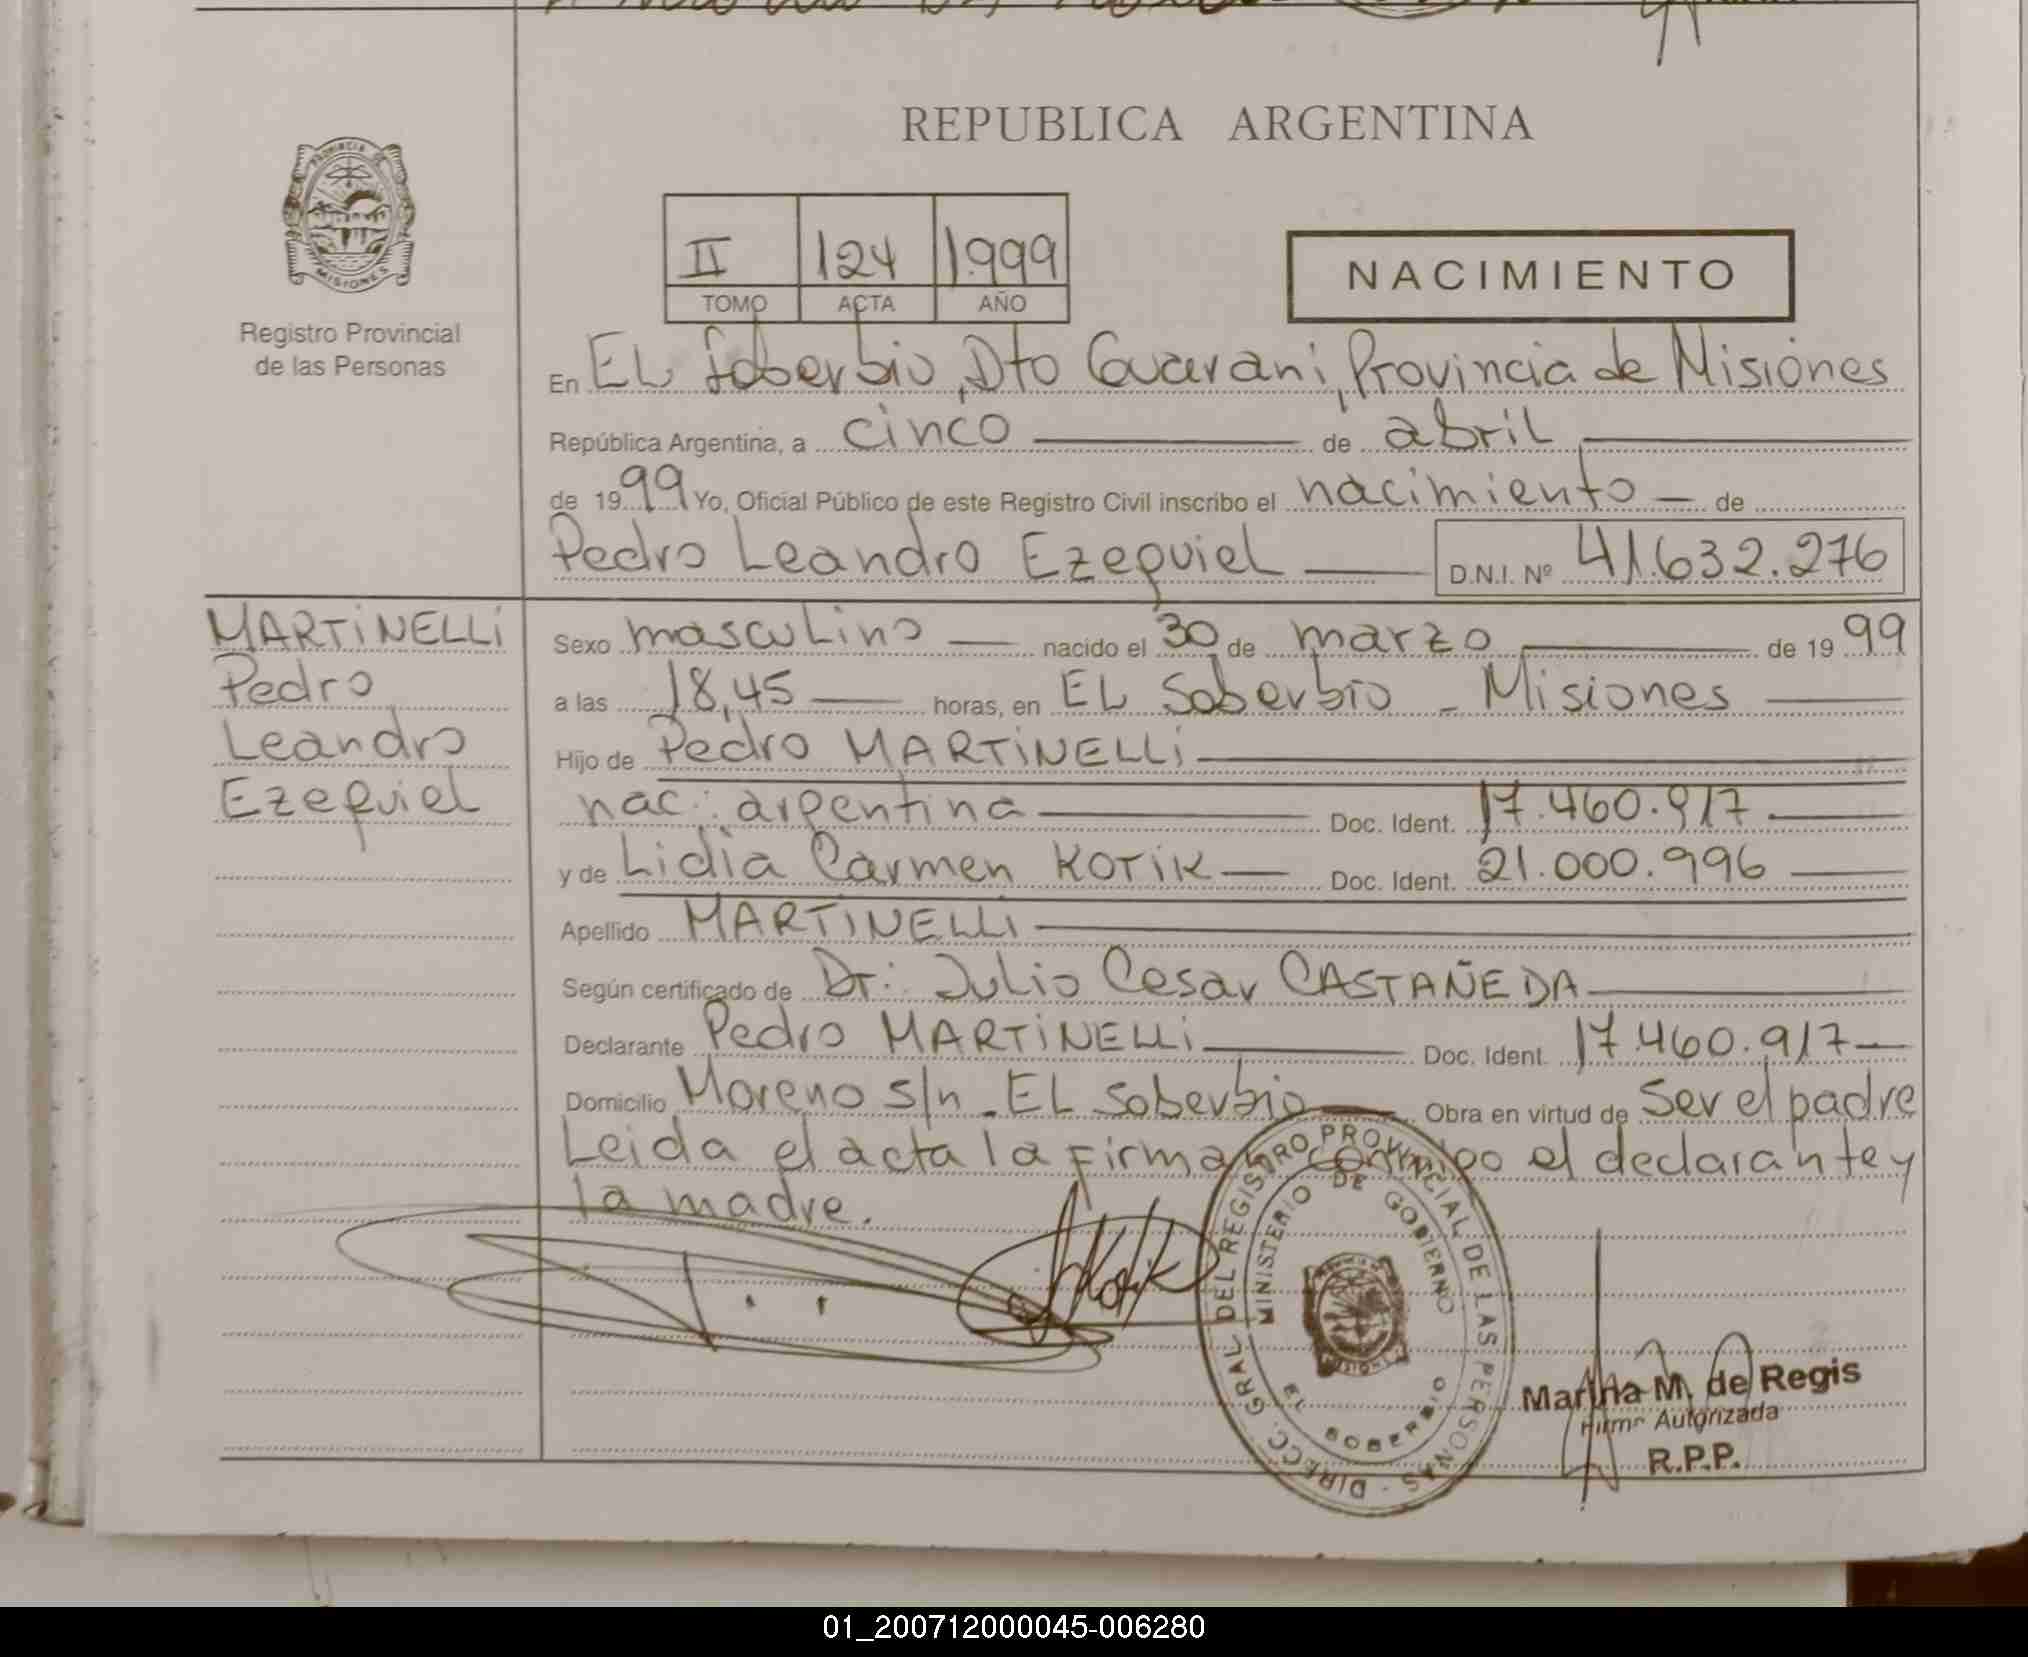 PROVINCIA DE
MISIONES
Registro Provincial
de las Personas
REPUBLICA ARGENTINA
II 124 1.999
TOMO ACTA AÑO
NACIMIENTO
En EL Soberbio, Dto Guarani, Provincia de Misiones
República Argentina, a cinco de abril
de 1999 Yo, Oficial Público de este Registro Civil inscribo el nacimiento de
Pedro Leandro Ezequiel D.N.I. Nº 41.632.276
MARTINELLI
Pedro
Leandro
Ezequiel
Sexo masculino nacido el 30 de marzo de 1999
a las 18,45 horas, en EL Soberbio - Misiones
Hijo de Pedro MARTINELLI
nac: argentina Doc. Ident. 17.460.917
y de Lidia Carmen KOTIK Doc. Ident. 21.000.996
Apellido MARTINELLI
Según certificado de Dr: Julio Cesar CASTAÑEDA
Declarante Pedro MARTINELLI Doc. Ident. 17.460.917
Domicilio Moreno s/n - EL Soberbio Obra en virtud de ser el padre
Leida el acta la firma conmigo el declarante y
la madre.
DIRECC. GRAL. DEL REGISTRO PROVINCIAL DE LAS PERSONAS -
MINISTERIO DE GOBIERNO
EL SOBERBIO
Marina M. de Regis
Firma Autorizada
R.P.P.
01_200712000045-006280